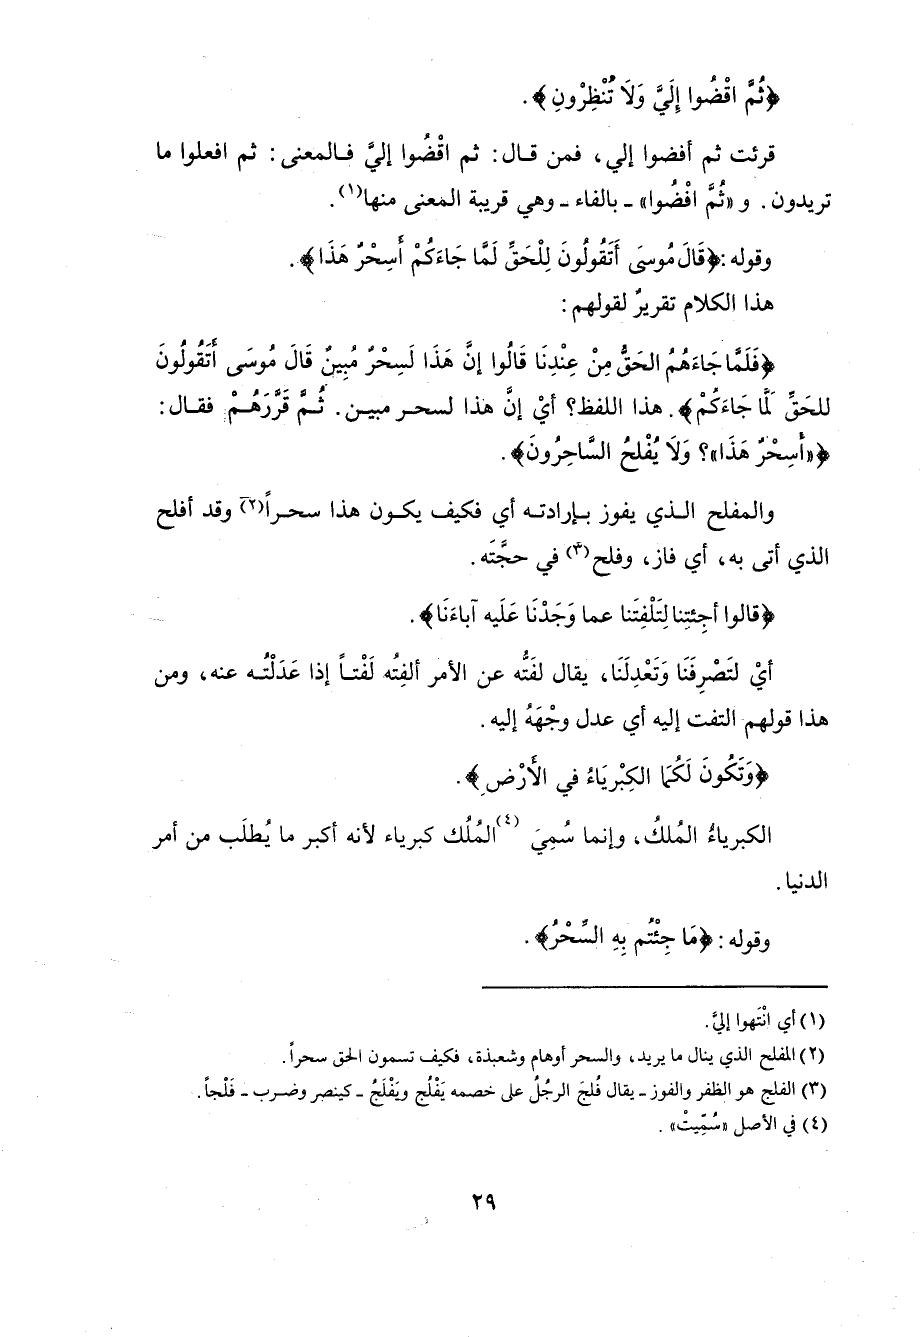 ﴿ثُمَّ اقْضُوا إِلَيَّ وَلَا تُنْظِرُونِ﴾.
قرئت ثم أفضوا إلي، فمن قال: ثم اقْضُوا إليَّ فالمعنى: ثم افعلوا ما
تريدون. و «ثُمَّ افْضُوا» ـ بالفاء ـ وهي قريبة المعنى منها(١).
وقوله: ﴿قَالَ مُوسَى أَتَقُولُونَ لِلْحَقِّ لَمَّا جَاءَكُمْ أَسِحْرٌ هَذَا﴾.
هذا الكلام تقريرٌ لقولهم:
﴿فَلَمَّا جَاءَهُمُ الحَقُّ مِنْ عِنْدِنَا قَالُوا إنَّ هَذَا لَسِحْرٌ مُبِينٌ قَالَ مُوسَى أَتَقُولُونَ
للحَقِّ لَمَّا جَاءَكُمْ﴾. هذا اللفظ؟ أيْ إنَّ هذا لسحر مبين. ثُمَّ قَرَّرَهُمْ فقال:
﴿«أَسِحْرٌ هَذَا»؟ وَلَا يُفْلحُ السَّاحِرُونَ﴾.
والمفلح الذي يفوز بإرادته أي فكيف يكون هذا سحراً(٢) وقد أفلح
الذي أتى به، أي فاز، وفلح(٣) في حجَّتَه.
﴿قالوا أجِئتِنا لِتَلْفِتَنا عما وَجَدْنَا عَلَيه آباءَنَا﴾.
أيْ لتَصْرِفَنَا وَتَعْدِلَنَا، يقال لفَتُّه عن الأمر ألفِتُه لَفْتاً إذا عَدَلْتُه عنه، ومن
هذا قولهم التفت إليه أي عدل وجْهَهُ إليه.
﴿وَتَكُونَ لَكُمَا الكِبْرِيَاءُ في الأَرْضِ﴾.
الكبرياءُ المُلكُ، وإنما سُمِيَ (٤)المُلُك كبرياء لأنه أكبر ما يُطلَب من أمر
الدنيا.
وقوله: ﴿مَا جِئْتُم بِهِ السِّحْرُ﴾.
(١) أي انْتَهوا إليَّ.
(٢) المفلح الذي ينال ما يريد، والسحر أوهام وشعبذة، فكيف تسمون الحق سحراً.
(٣) الفلج هو الظفر والفوز ـ يقال فُلجَ الرجُلُ على خصمه يَفْلُج ويَفْلَجُ ـ كينصر وضرب ـ فَلْجاً.
(٤) في الأصل «سُمِّيتْ».
٢٩